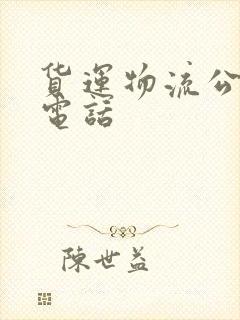 货運物流公
電話
陳世益